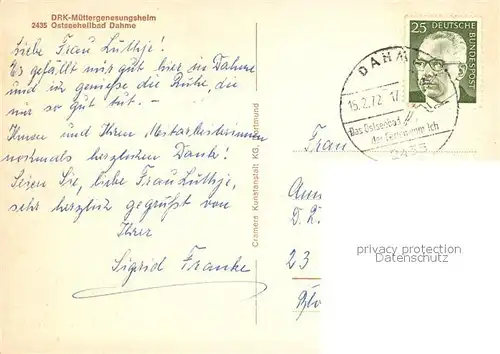 DRK-Müttergenesungsheim
2435 Ostseeheilbad Dahme
Liebe Frau Luthje!
Es gefällt mir gut hier in Dahme
und ich genieße die Ruhe, die
mir so gut tut. -
Ihnen und Ihren Mitarbeiterinnen
nochmals herzlichen Dank!
Seien Sie, liebe Frau Luthje,
sehr herzlich gegrüßt von
Ihrer
Sigrid Franke
Cramers Kunstanstalt KG, Dortmund
25
DEUTSCHE BUNDESPOST
DAHM
15.2.72
Das Ostseebad
2435
Frau
D.
23
privacy protection
Datenschutz